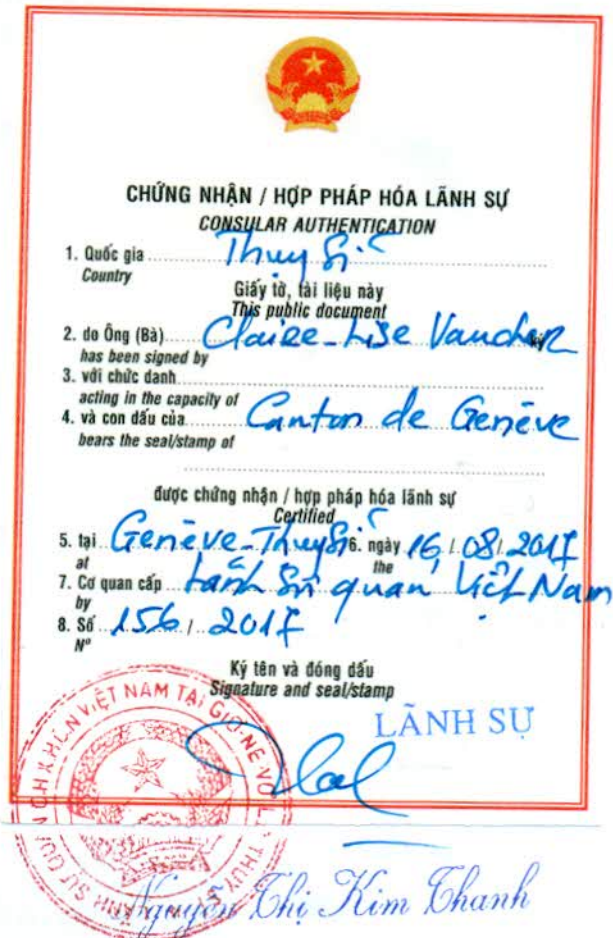 CHỨNG NHẬN / HỢP PHÁP HÓA LÃNH SỰ
CONSULAR AUTHENTICATION
1. Quốc gia Thụy Sĩ
Country
Giấy tờ, tài liệu này
This public document
2. do Ông (Bà) Claire-Lise Vaucher ký
has been signed by
3. với chức danh
acting in the capacity of
4. và con dấu của Canton de Genève
bears the seal/stamp of
được chứng nhận / hợp pháp hóa lãnh sự
Certified
5. tại Genève-Thụy Sĩ 6. ngày 16/08/2017
at the
7. Cơ quan cấp Lãnh Sự quán Việt Nam
by
8. Số 156 / 2017
Nº
Ký tên và đóng dấu
Signature and seal/stamp
LÃNH SỰ
VIỆT NAM TẠI GIƠ-NE-VƠ
Nguyễn Thị Kim Thanh